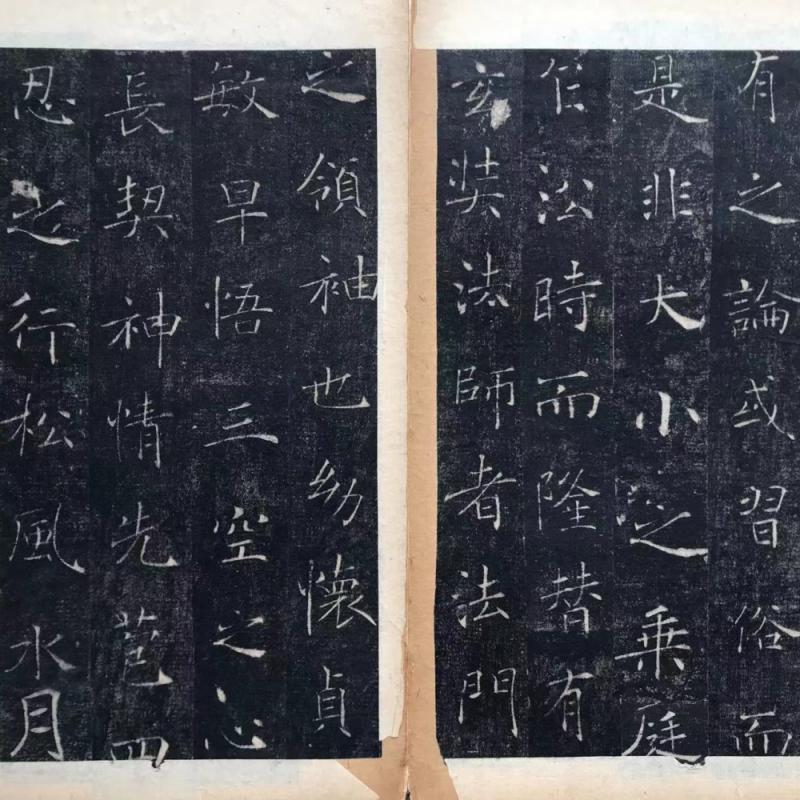 有之論或習俗而
是非大小之乘
沿時而隆替有
玄奘法師者法門
之領袖也幼懷貞
敏早悟三空之心
長契神情先苞四
忍之行松風水月